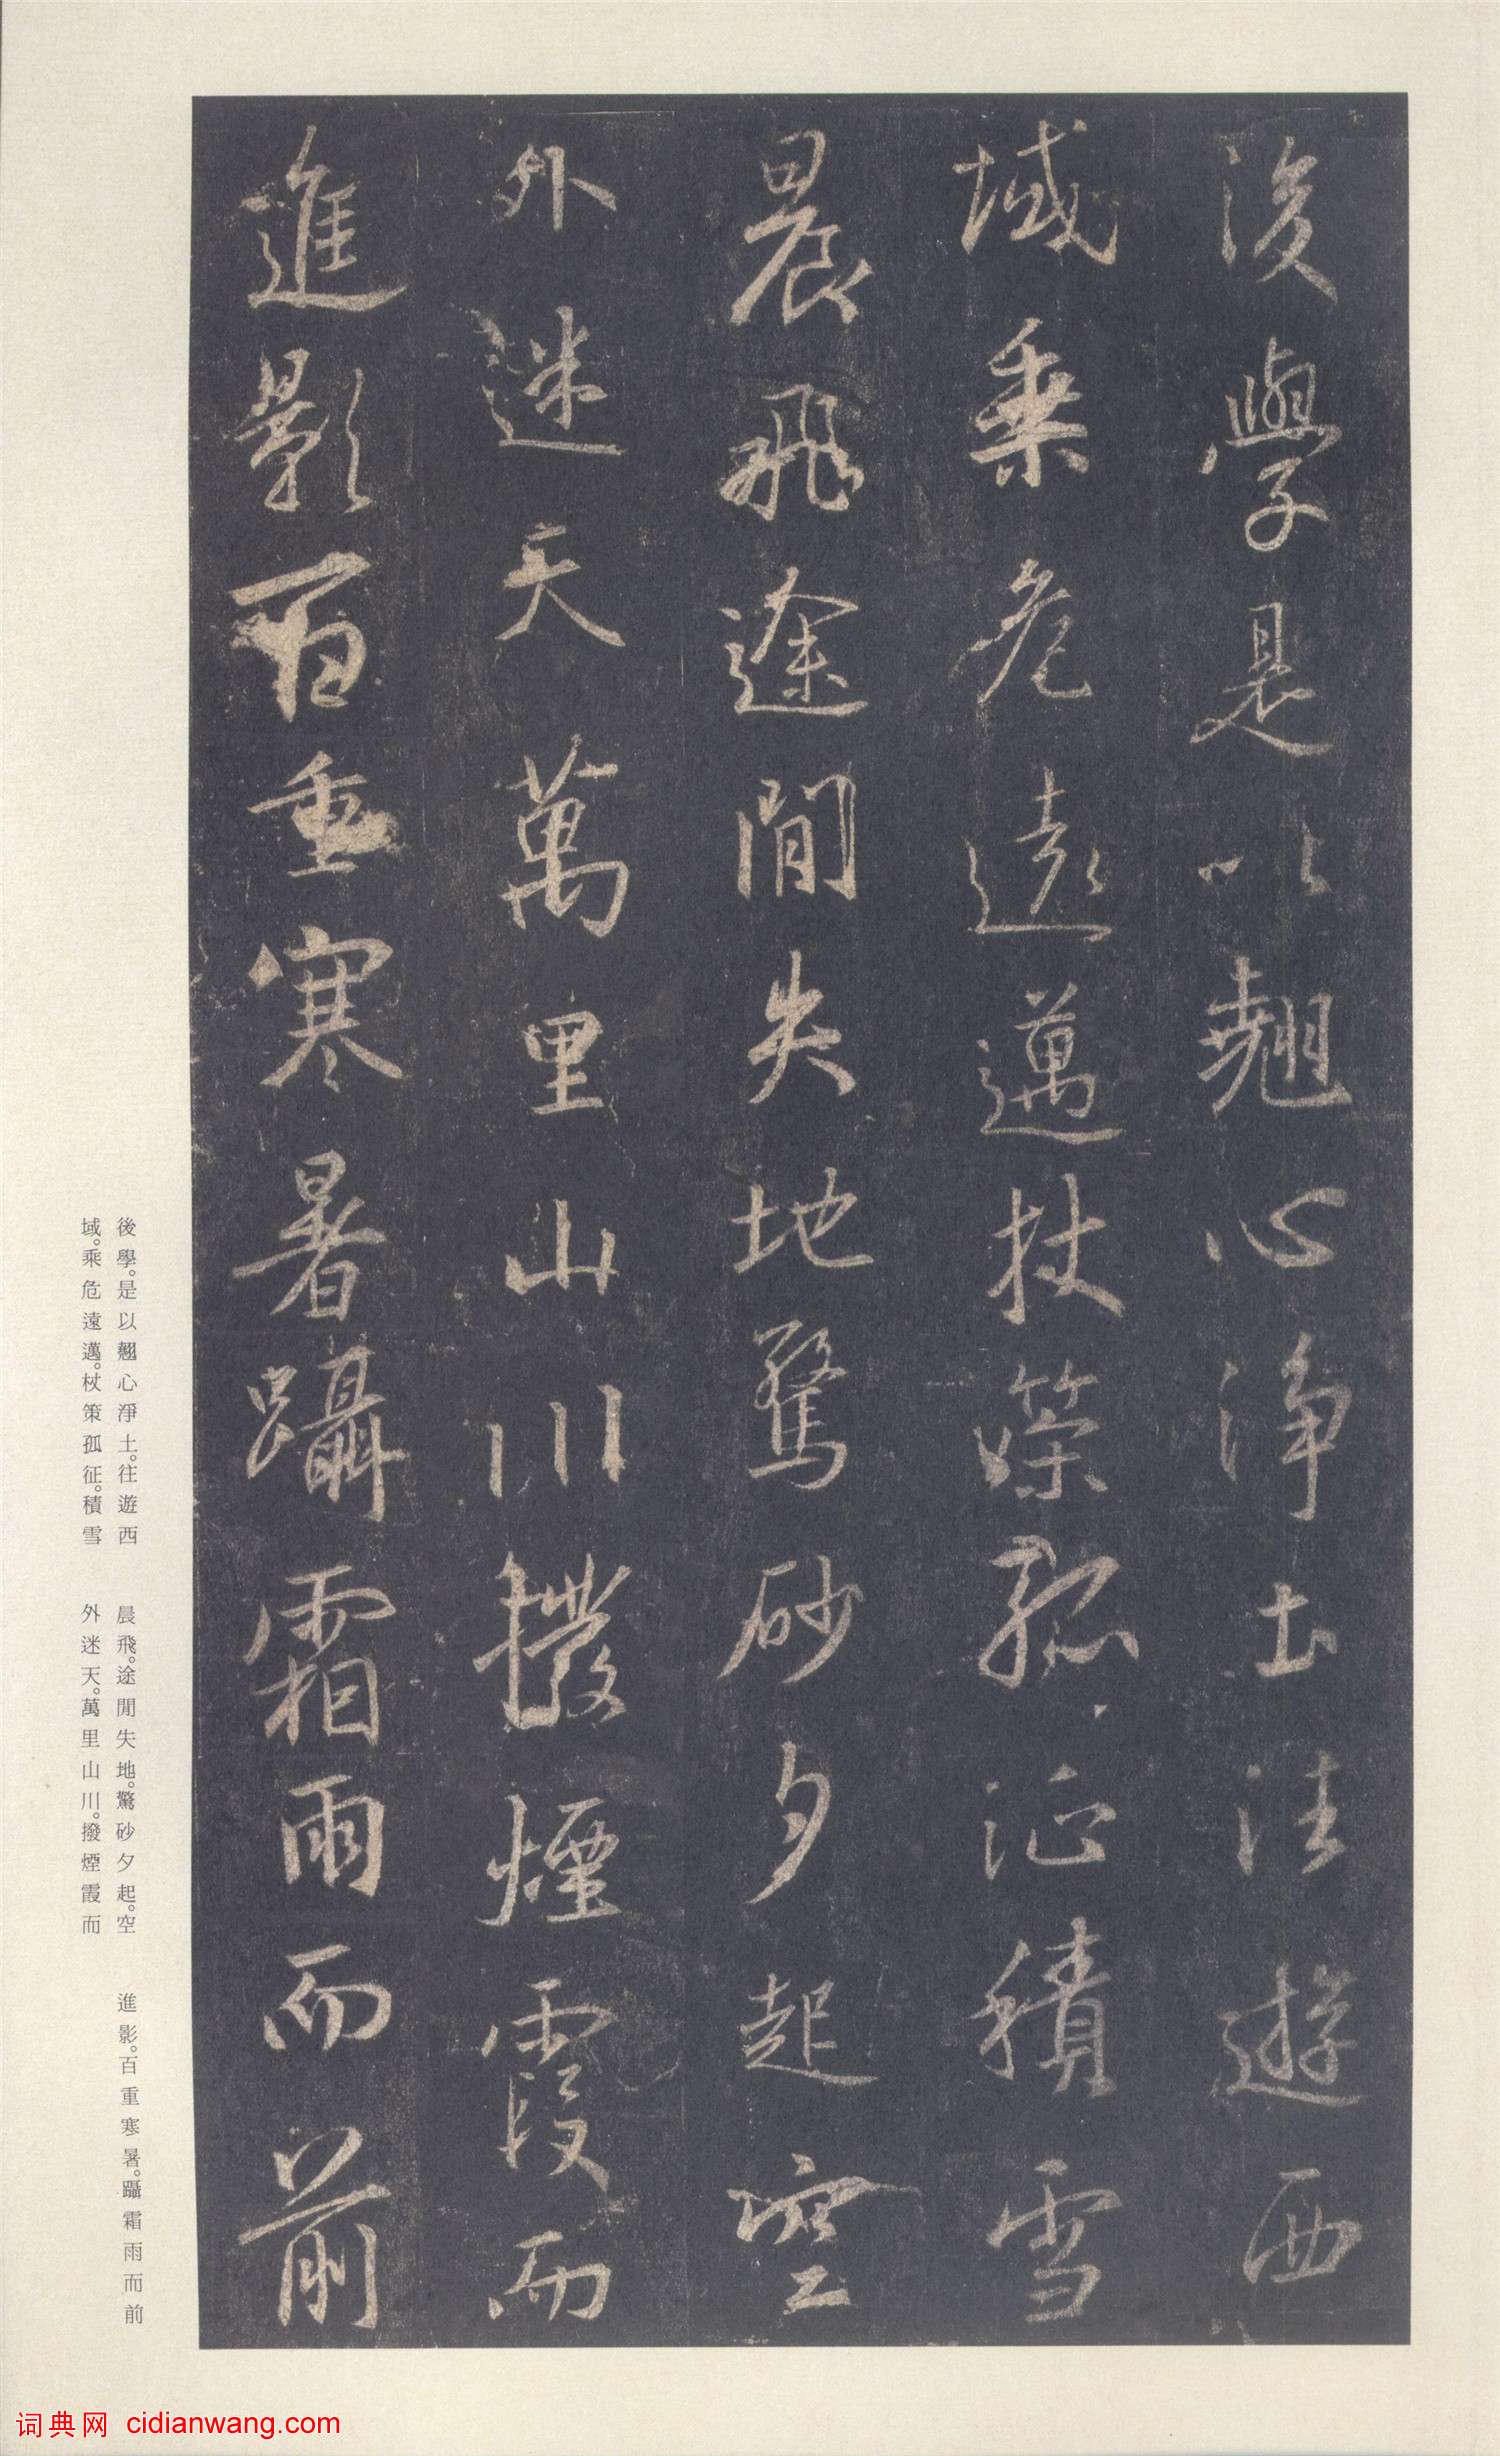 後學是以翹心淨土法遊西
域乘危遠邁杖策孤征積雪
晨飛途間失地驚砂夕起空
外迷天萬里山川撥煙霞而
進影百重寒暑躡霜雨而前
後學。是以翹心淨土。往遊西
域。乘危遠邁。杖策孤征。積雪
晨飛。途閒失地。驚砂夕起。空
外迷天。萬里山川。撥煙霞而
進影。百重寒暑。躡霜雨而前
词典网 cidianwang.com